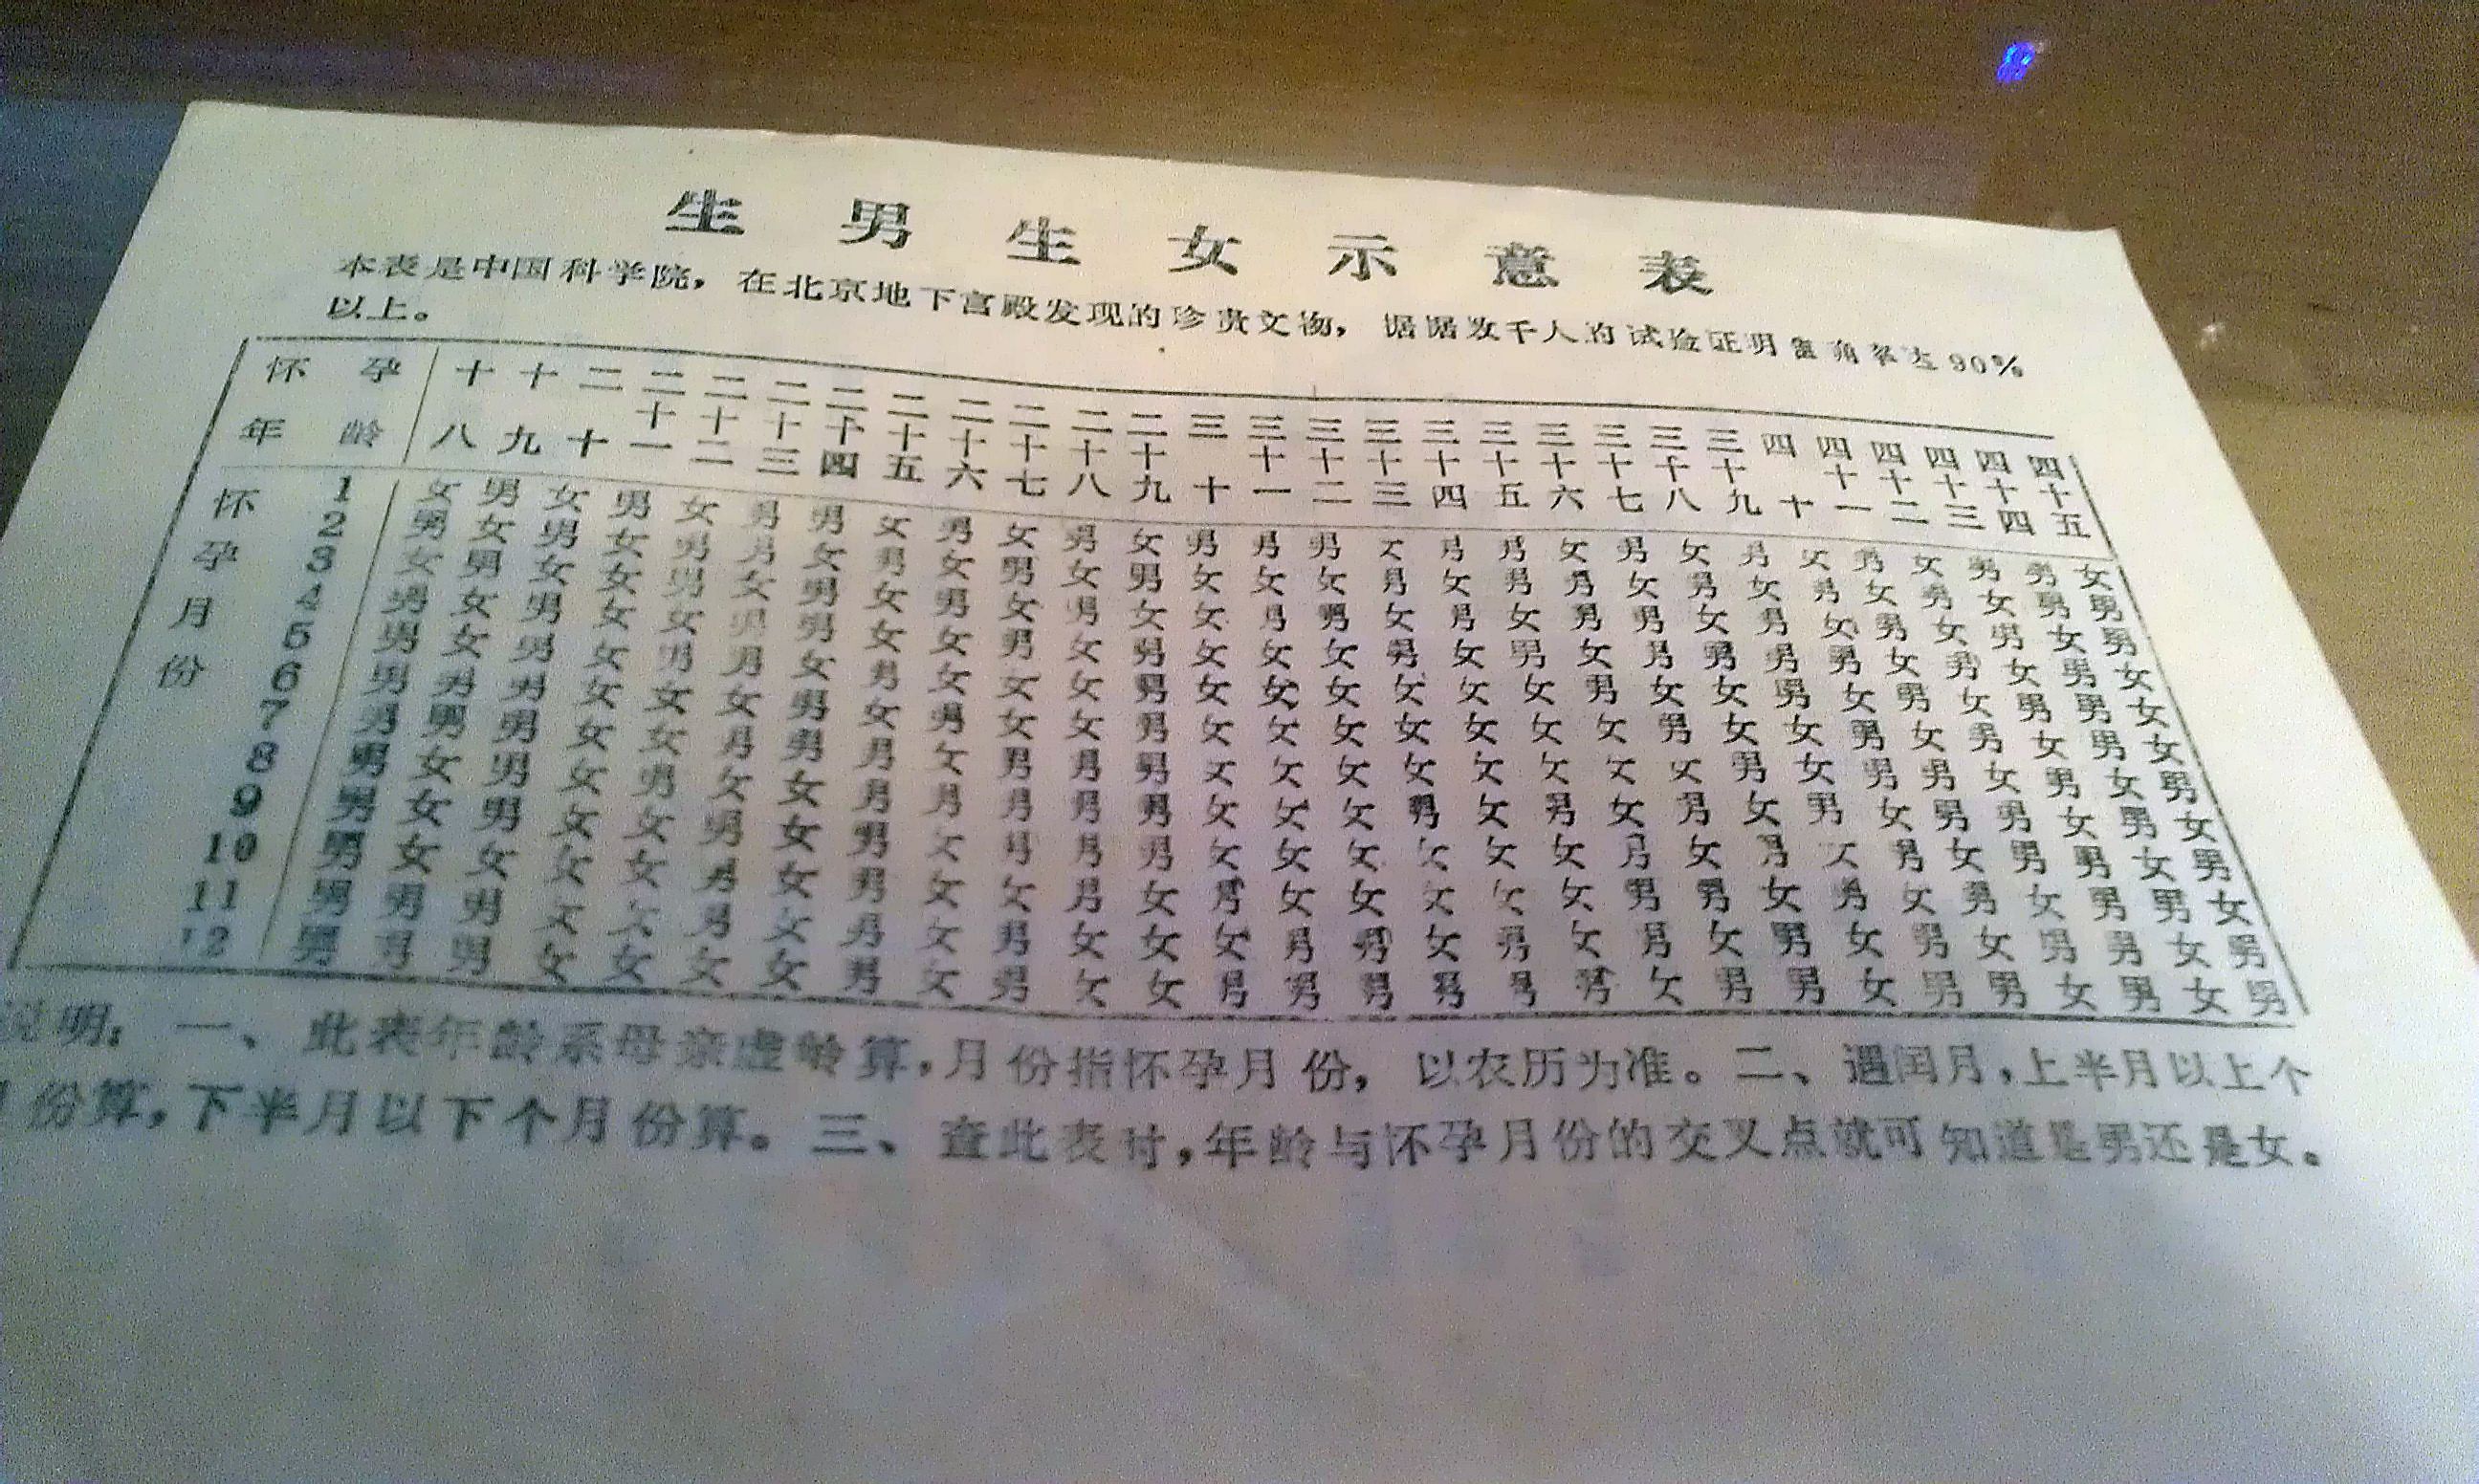 生男生女示意表
本表是中国科学院，在北京地下宫殿发现的珍贵文物，据据数千人的试验证明准确率达90%
以上。
怀孕年龄 十八 十九 二十 二十一 二十二 二十三 二十四 二十五 二十六 二十七 二十八 二十九 三十 三十一 三十二 三十三 三十四 三十五 三十六 三十七 三十八 三十九 四十 四十一 四十二 四十三 四十四 四十五
怀孕月份
1 女 男 女 男 女 男 男 女 男 女 男 女 男 男 男 女 男 男 女 男 女 男 女 男 女 男 男 女
2 男 女 男 女 男 男 女 男 女 男 女 男 女 女 女 男 女 男 男 女 男 女 男 女 男 女 男 男
3 女 男 女 女 男 女 男 女 男 女 男 女 女 男 男 女 男 女 男 男 女 男 女 男 女 男 女 男
4 男 女 男 女 女 男 男 女 女 男 女 男 女 女 女 男 女 男 女 男 男 男 男 女 男 女 男 女
5 男 女 男 女 男 男 女 男 女 女 女 男 女 女 女 女 女 女 男 女 女 男 女 男 女 男 男 女
6 男 男 男 女 女 女 男 女 男 女 女 男 女 女 女 女 女 女 女 男 女 女 男 女 男 女 男 女
7 男 男 男 女 女 男 男 男 女 男 男 男 女 女 女 女 女 女 女 女 男 女 男 男 女 男 女 男
8 男 女 男 女 男 女 女 男 男 男 男 男 女 女 女 男 女 男 女 男 女 男 女 男 男 女 男 女
9 男 女 男 女 女 男 女 男 女 男 男 男 女 女 女 女 女 女 男 女 男 女 男 女 男 男 女 男
10 男 女 女 女 女 男 女 男 女 女 男 女 男 女 女 女 女 女 男 男 女 男 女 男 女 男 男 女
11 男 男 男 女 女 男 女 男 女 男 女 女 女 男 男 女 男 女 男 女 男 女 男 女 男 男 女 男
12 男 男 男 女 女 女 女 男 女 男 女 女 男 男 男 男 男 男 女 男 男 女 男 男 女 男 女 男
说明：一、此表年龄系母亲虚龄算，月份指怀孕月份，以农历为准。二、遇闰月，上半月以上个
月份算，下半月以下个月份算。三、查此表时，年龄与怀孕月份的交叉点就可知道是男还是女。